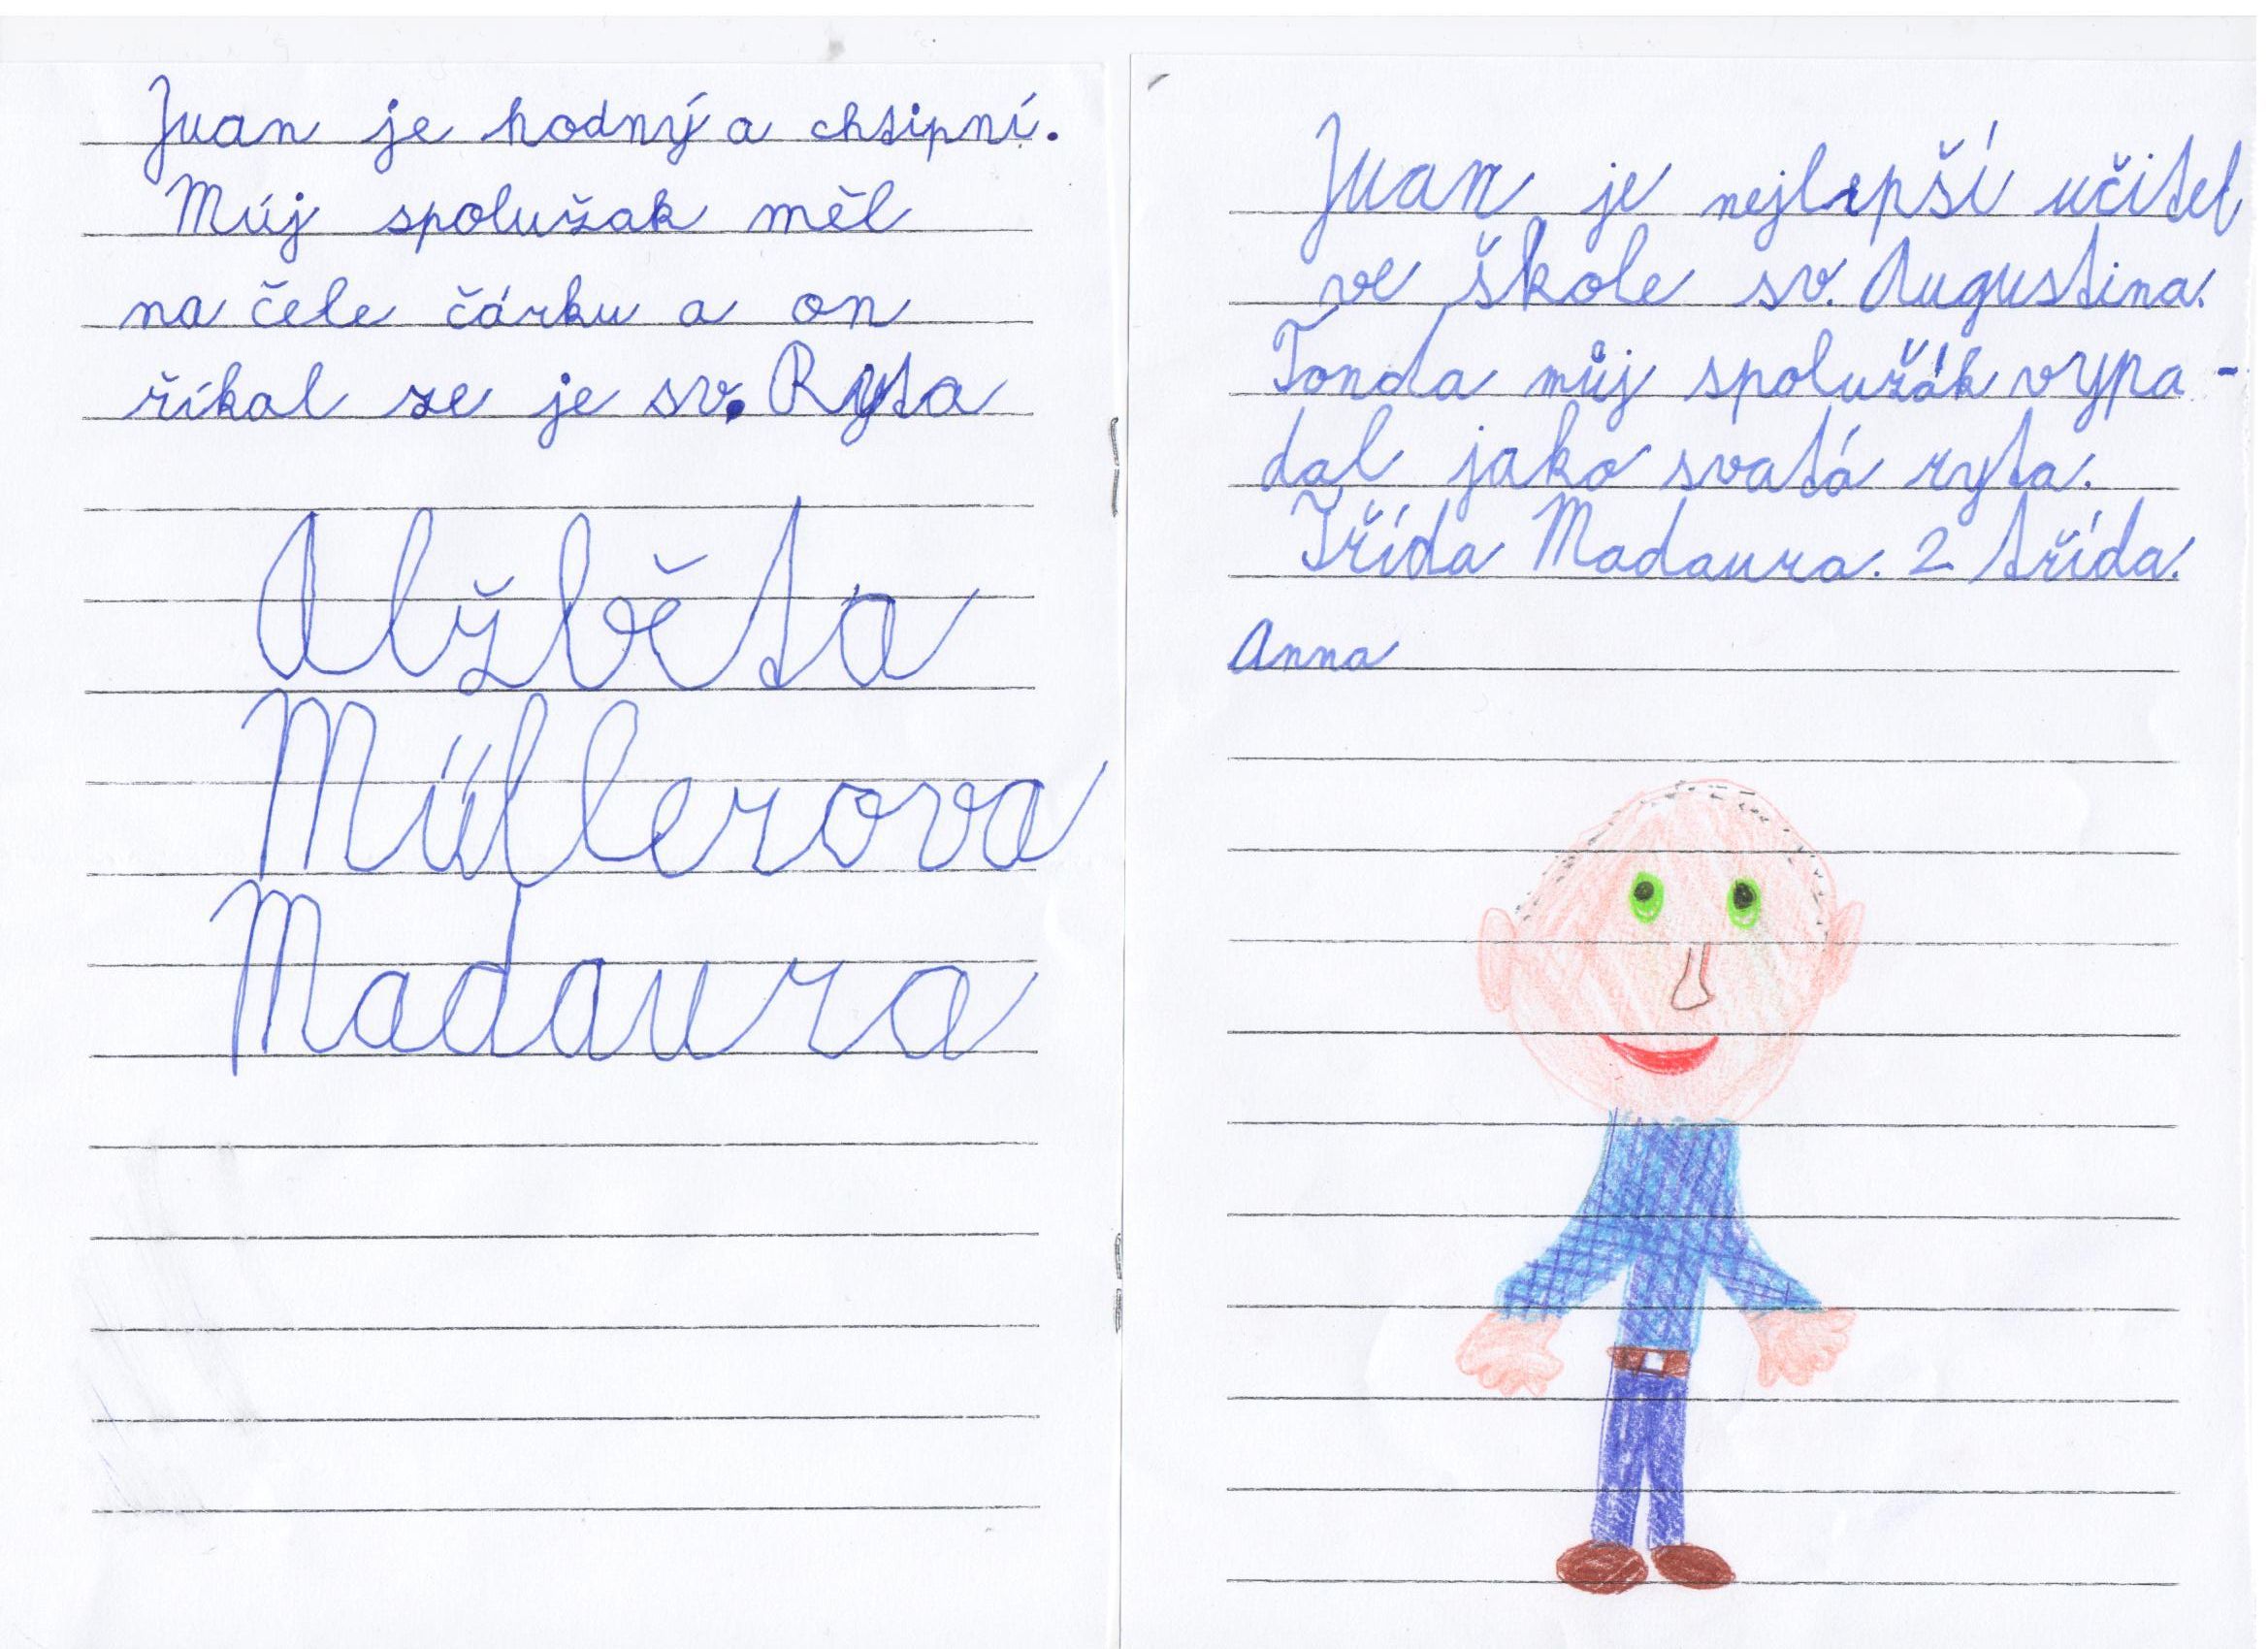 Juan je hodný a chtipní.
Múj spolužak měl
na čele čárku a on
říkal ze je sv. Ryta
Alžběta
Müllerova
Madaura
Juan je nejlepší učitel
ve škole sv. Augustina.
Tonda můj spolužák vypa-
dal jako svatá ryta.
Třída Madaura. 2 třída.
Anna